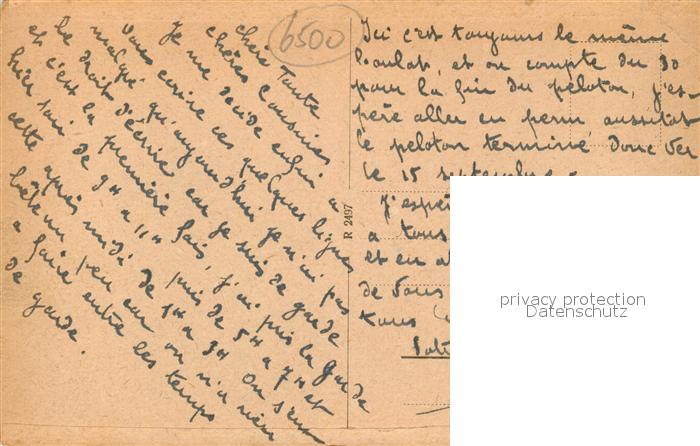 6500
chère Tante
chères Cousines
Je me décide enfin a
vous ecrire ces quelques lignes
malgré qu'aujourd'hui je n'ai pas
le droit d'écrire car je suis de garde
et c'est la première fois, j'ai pris la garde
hier soir de 9H a 11H puis de 5H a 7H et
cette après midi de 1H a 3H On s'em
bête un peu car on n'a rien
a faire entre les temps
de garde.
R 2497
Ici c'est toujours le même
boulot, et on compte du 30
pour la fin du peloton, j'es-
père aller en perm aussitot
le peloton terminé donc ver
le 15 septembre.
J'espè
a tous
et en at
de Vous
tous
Votr
privacy protection
Datenschutz